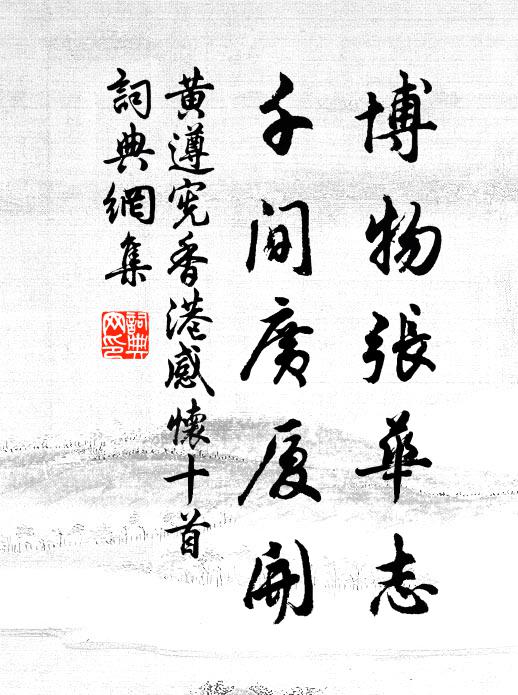 博物張華志
千間廣厦開
黄遵宪香港感懷十首
詞典網集
詞典
网印